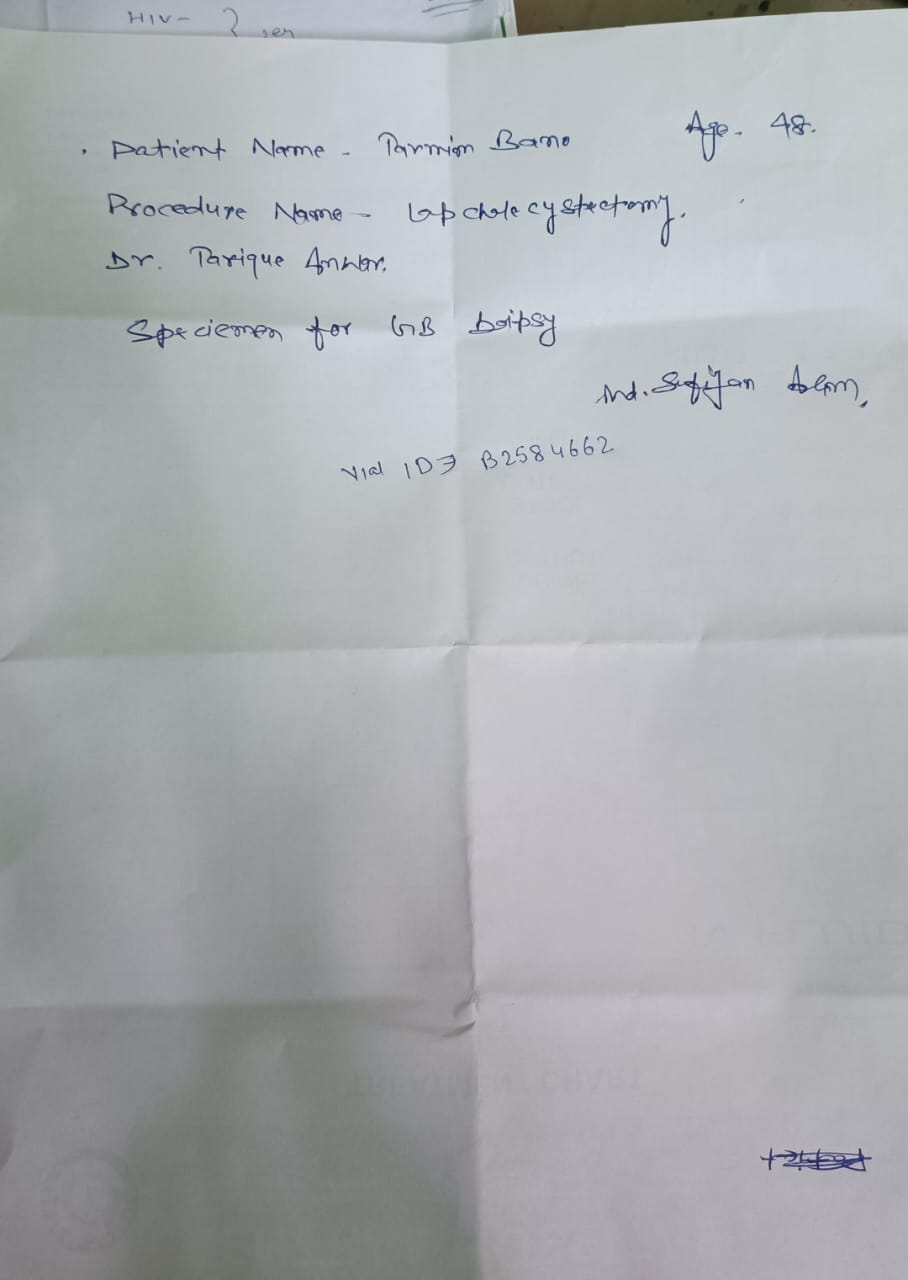 HIV -
Patient Name - Parmion Bano Age. 48.
Procedure Name - Lap chole cystectomy.
Dr. Tarique Anwar.
Speciemen for GB boipsy
Md. Sufiyan Alam,
Vial ID B2584662
TREATMENT CHART